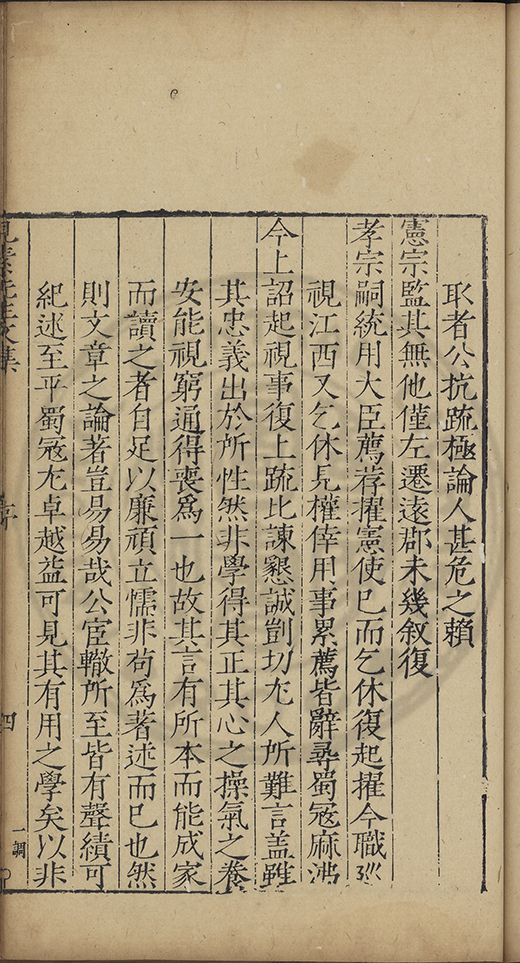 耿者公抗疏極論人甚危之賴
憲宗監其無他僅左遷遠郡未幾敘復
孝宗嗣統用大臣薦荐擢憲使已而乞休復起擢今職巡
視江西又乞休見權倖用事累薦皆辭尋蜀冦麻沸
今上詔起視事復上疏比諫懇誠剴切尤人所難言盖雖
其忠義出於所性然非學得其正其心之操氣之養
安能視窮通得喪爲一也故其言有所本而能成家
而讀之者自足以廉頑立懦非苟爲著述而已也然
則文章之論著豈易易哉公宦轍所至皆有聲績可
紀述至平蜀冦尤卓越益可見其有用之學矣以非
見素先生文集 序 四
一調